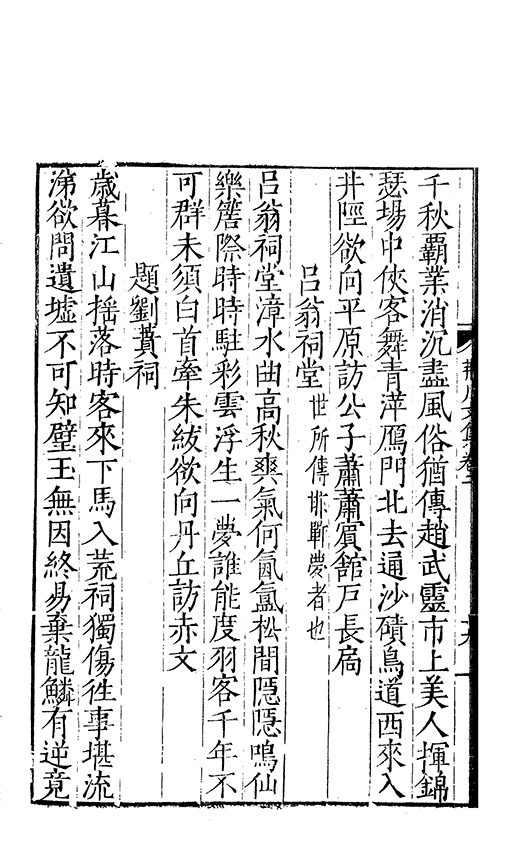 千秋覇業消沉盡風俗猶傳趙武靈市上美人揮錦
瑟場中俠客舞青萍鴈門北去通沙磧鳥道西來入
井陘欲向平原訪公子蕭蕭賓舘戸長扄
吕翁祠堂世所傳邯鄲夢者也
吕翁祠堂漳水曲高秋爽氣何氤氲松間隠隠鳴仙
樂簷際時時駐彩雲浮生一夢誰能度羽客千年不
可群未須白首牽朱紱欲向丹丘訪赤文
題劉蕡祠
歳暮江山揺落時客來下馬入荒祠獨傷徃事堪流
涕欲問遺墟不可知璧玉無因終易棄龍鱗有逆竟
荆川文集卷
十九